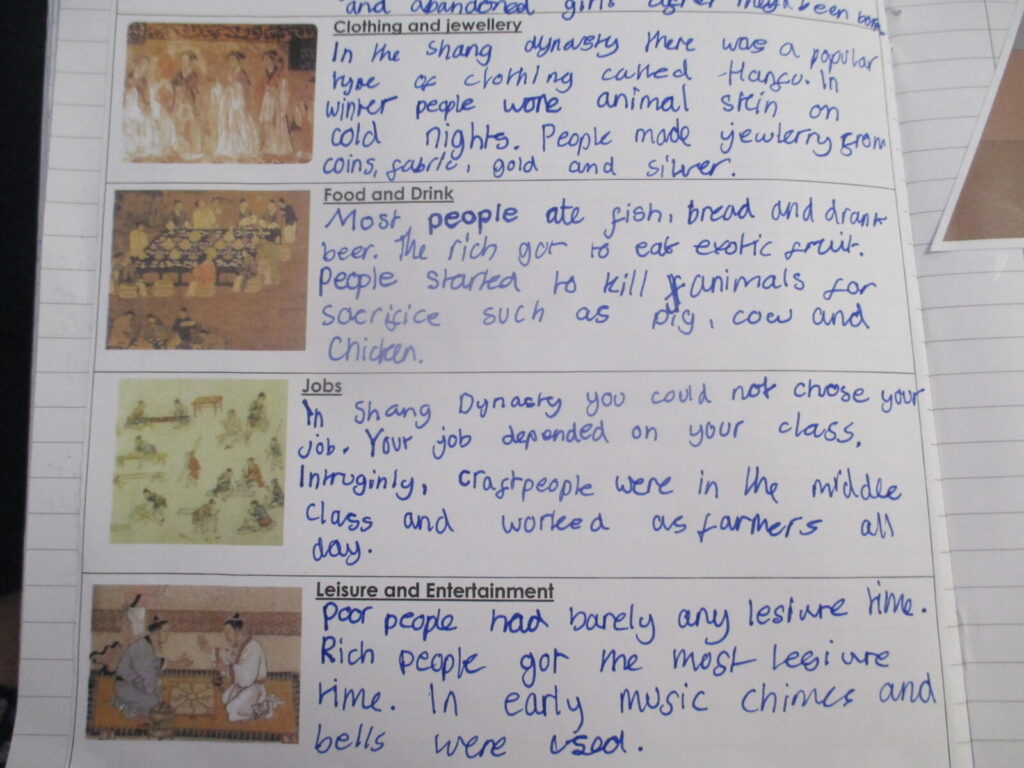 and abandoned girls after they'd been born
Clothing and jewellery
In the Shang dynasty there was a popular
type of clothing called Hanfu. In
winter people wore animal skin on
cold nights. People made jewlerry from
coins, fabric, gold and silver.
Food and Drink
Most people ate fish, bread and drank
beer. The rich got to eat exotic fruit.
People started to kill animals for
sacrifice such as pig, cow and
Chicken.
Jobs
In Shang Dynasty you could not chose your
job. Your job depended on your class.
Intruginly, craftpeople were in the middle
class and worked as farmers all
day.
Leisure and Entertainment
Poor people had barely any lesiure time.
Rich people got the most lesiure
time. In early music chimes and
bells were used.